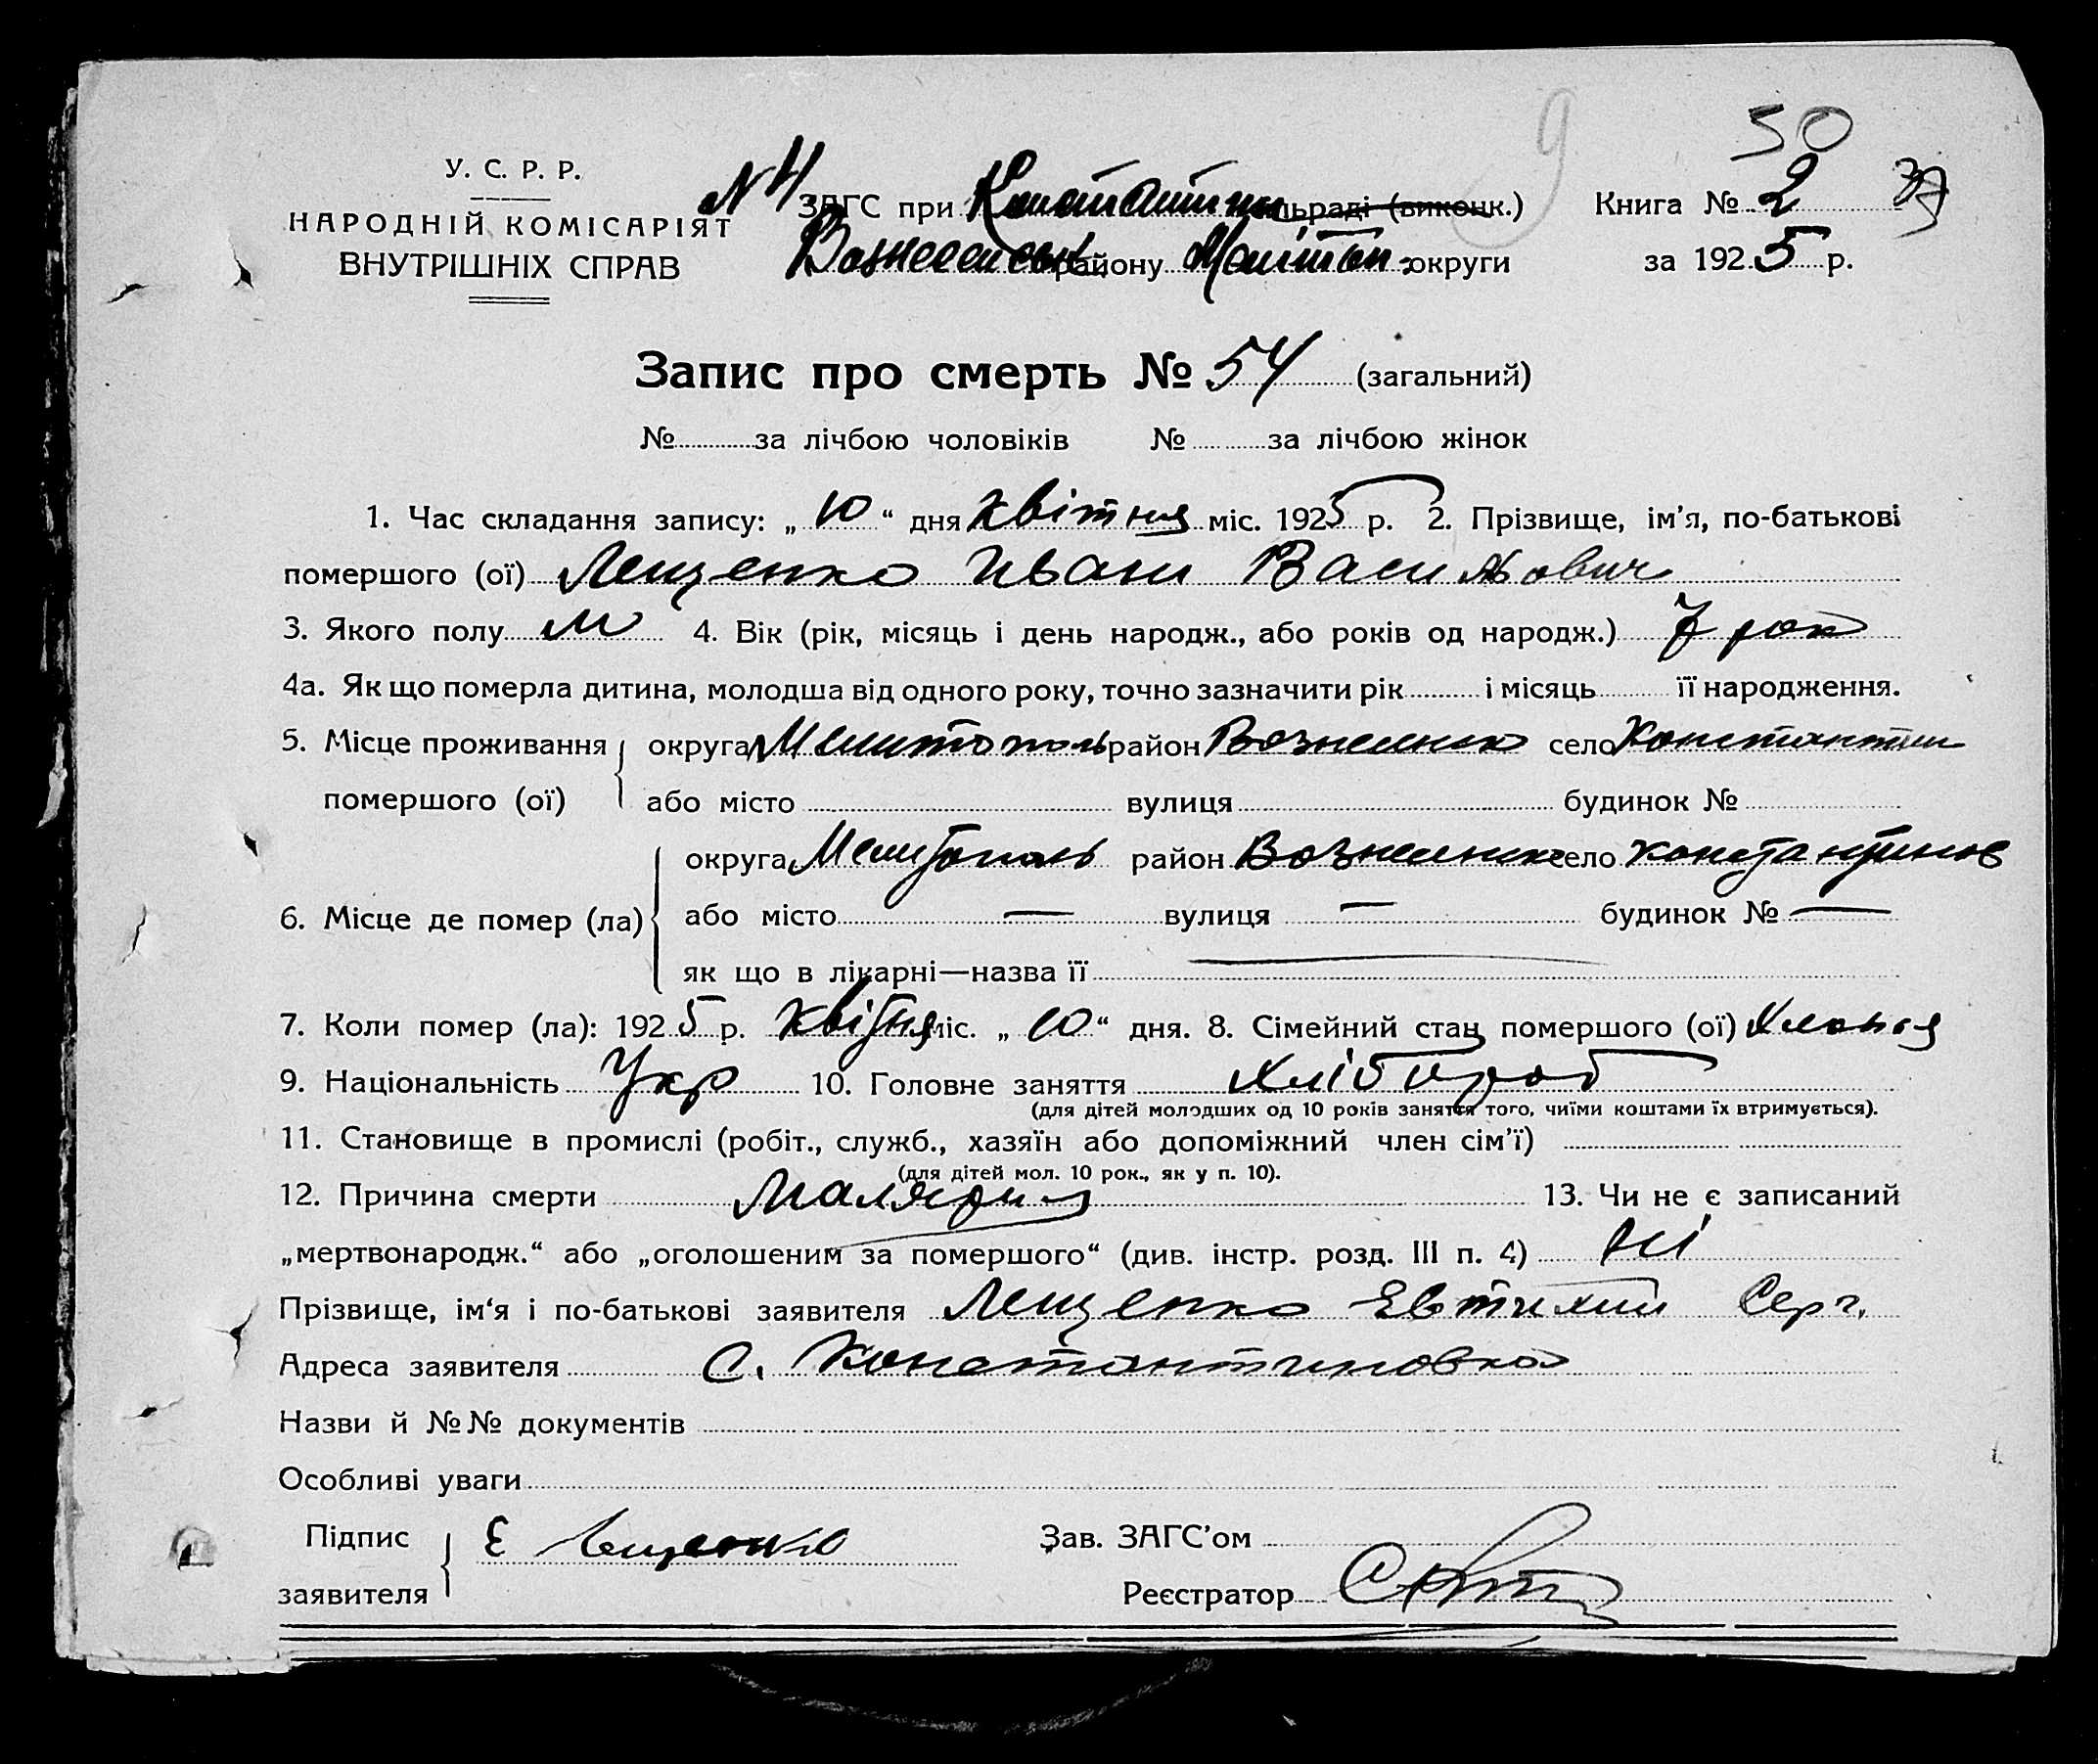 50
У. С. Р. Р.
НАРОДНІЙ КОМІСАРІЯТ
ВНУТРІШНІХ СПРАВ
ЗАГС при Константин льраді (виконк.) Книга № 2
району округи за 1925 р.
9
Запис про смерть № 54 (загальний)
№ за лічбою чоловіків № за лічбою жінок
1. Час складання запису: „ 10 “ дня Квітня міс. 1925 р. 2. Прізвище, ім’я, по-батькові
помершого (ої) Лещенко Иван Васильович
3. Якого полу м 4. Вік (рік, місяць і день народж., або років од народж.) 7 рок
4а. Як що померла дитина, молодша від одного року, точно зазначити рік і місяць її народження.
5. Місце проживання округа Мелитополь район село Константин
помершого (ої) або місто вулиця будинок №
округа Мелитополь район село Константинов
6. Місце де помер (ла) або місто — вулиця — будинок № —
як що в лікарні—назва її
7. Коли помер (ла): 1925 р. Квітня міс. „ 10 “ дня. 8. Сімейний стан помершого (ої)
9. Національність Укр 10. Головне заняття Хлібороб
(для дітей молодших од 10 років заняття того, чиїми коштами їх втримується).
11. Становище в промислі (робіт., служб., хазяїн або допоміжний член сім’ї)
(для дітей мол. 10 рок., як у п. 10).
12. Причина смерти Малярия 13. Чи не є записаний
„мертвонародж.“ або „оголошеним за помершого“ (див. інстр. розд. III п. 4) Ні
Прізвище, ім‘я і по-батькові заявителя Лещенко Евтихий Серг.
Адреса заявителя С. Константиновка
Назви й №№ документів
Особливі уваги
Підпис Е Лещенко Зав. ЗАГС’ом
заявителя Реєстратор